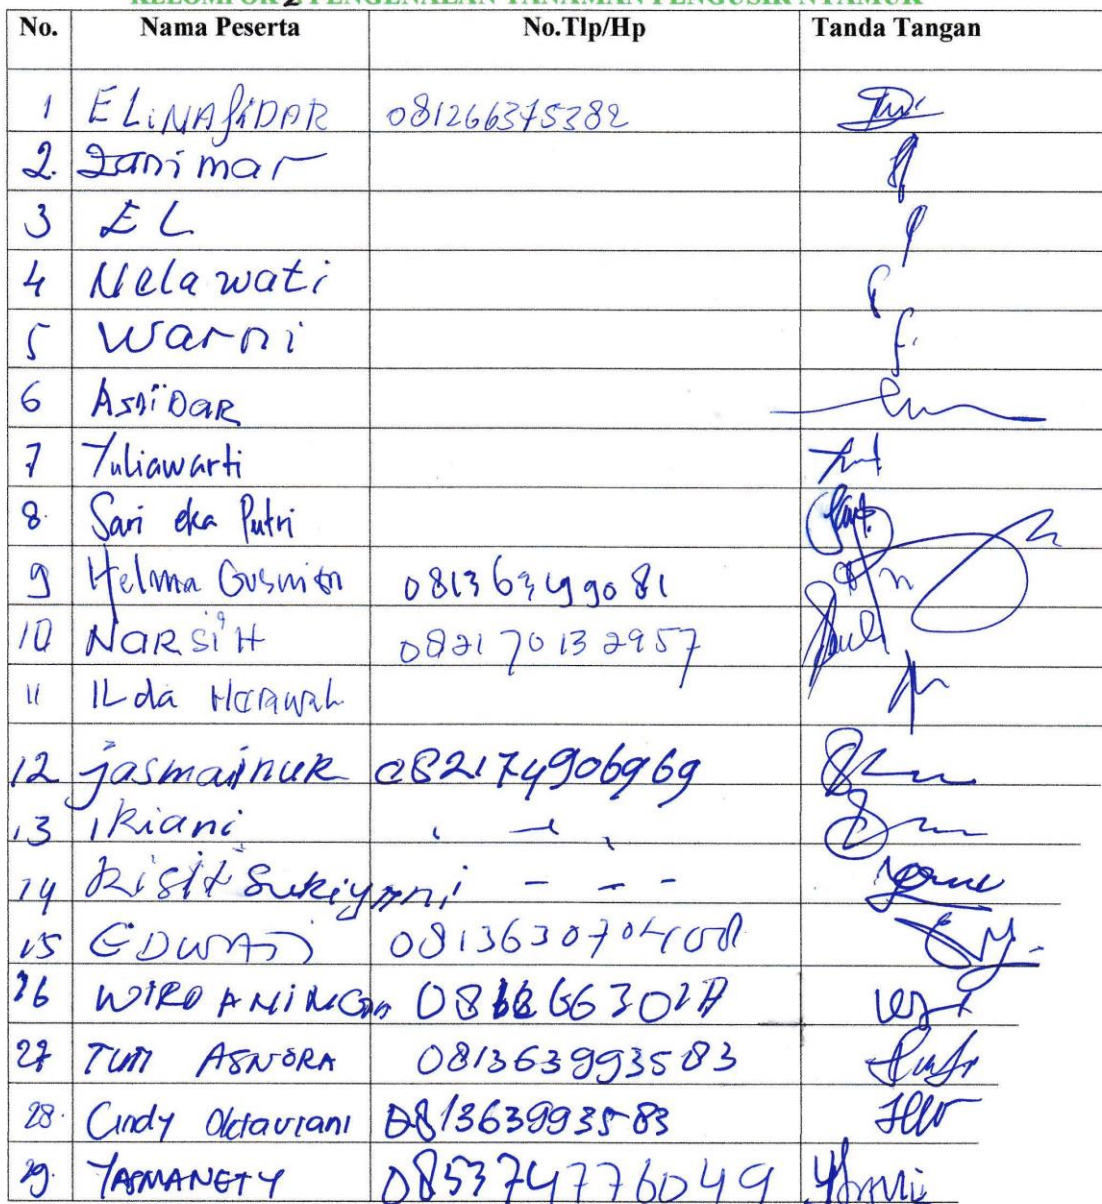 KELOMPOK 2 PENGENALAN TANAMAN PENGUSIR NYAMUK
No. Nama Peserta No.Tlp/Hp Tanda Tangan
1 ELiNAfiDAR 081266375382
2. Danimar
3 EL
4 Nelawati
5 Warni
6 AsniDaR
7 Yuliawarti
8. Sari eka Putri
9 Helma Gusnita 081363499081
10 NARSiH 082170132957
11 ILda
12 jasmainur 082174906969
13
14 Sukiyanni - - -
15 0813630
26
27 TUTI ASNORA 081363993583
28. Cindy Oktaviani 081363993583
29. YASMANETY 085374776049